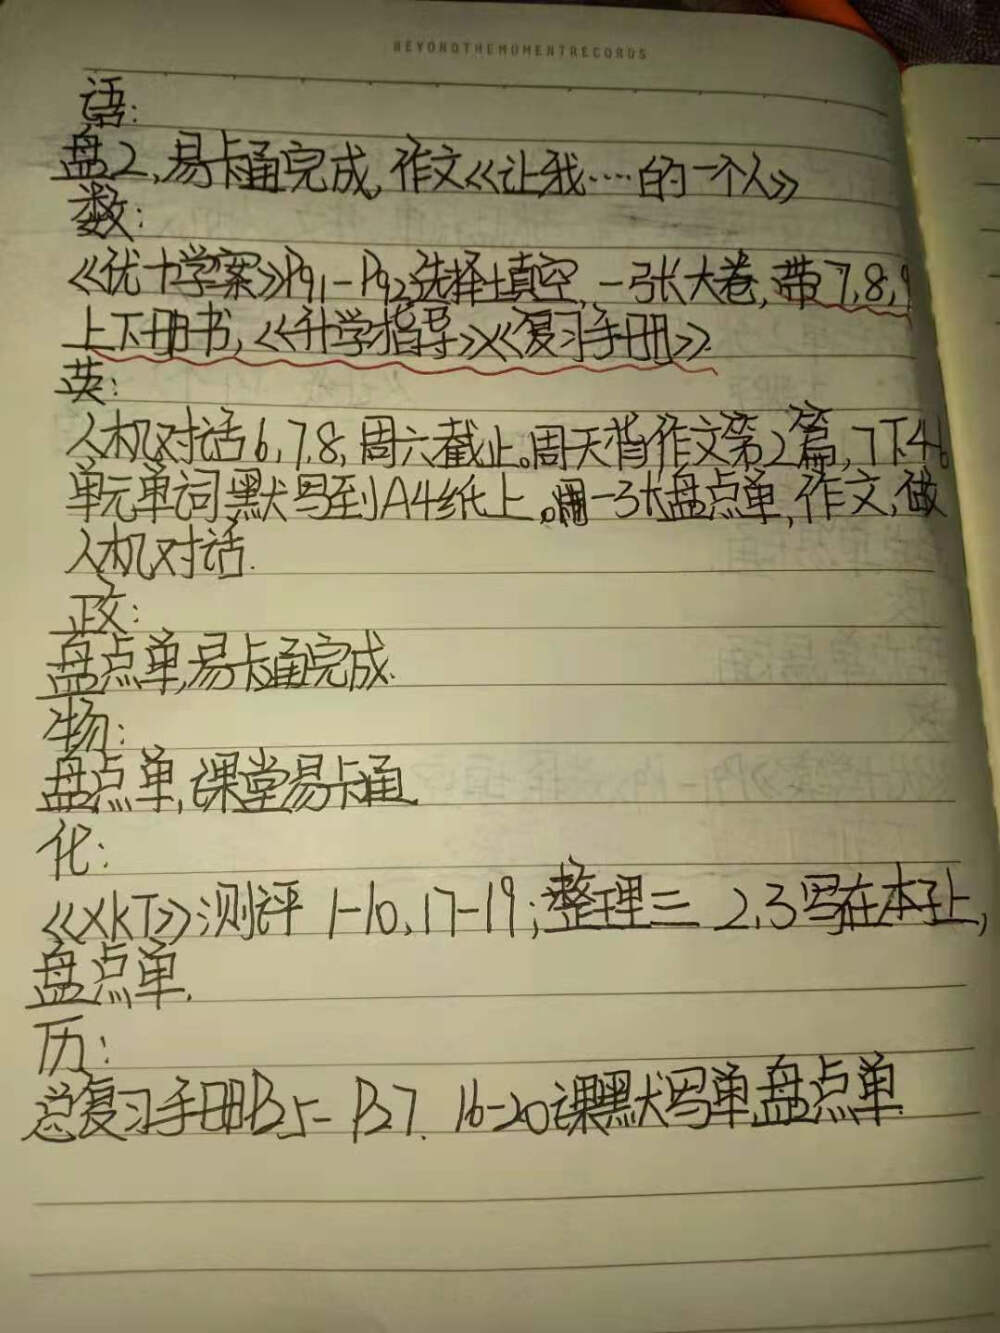 BEYONDTHEMOMENTRECORDS
语:
盘2,易卡通完成,作文《让我……的一个人》
数:
《优十学案》P91-P92选择填空,一张大卷,带7,8,9
上下册书,《升学指导》《复习手册》.
英:
人机对话6,7,8,周六截止。周天背作文第2篇,7下4-6
单元单词默写到A4纸上。一张盘点单,作文,做
人机对话.
政:
盘点单,易卡通完成.
物:
盘点单,课堂易卡通.
化:
《XKT》测评 1-10,17-19;整理三 2,3写在本子上,
盘点单.
历:
总复习手册P25-P27. 16-20课默写单,盘点单.